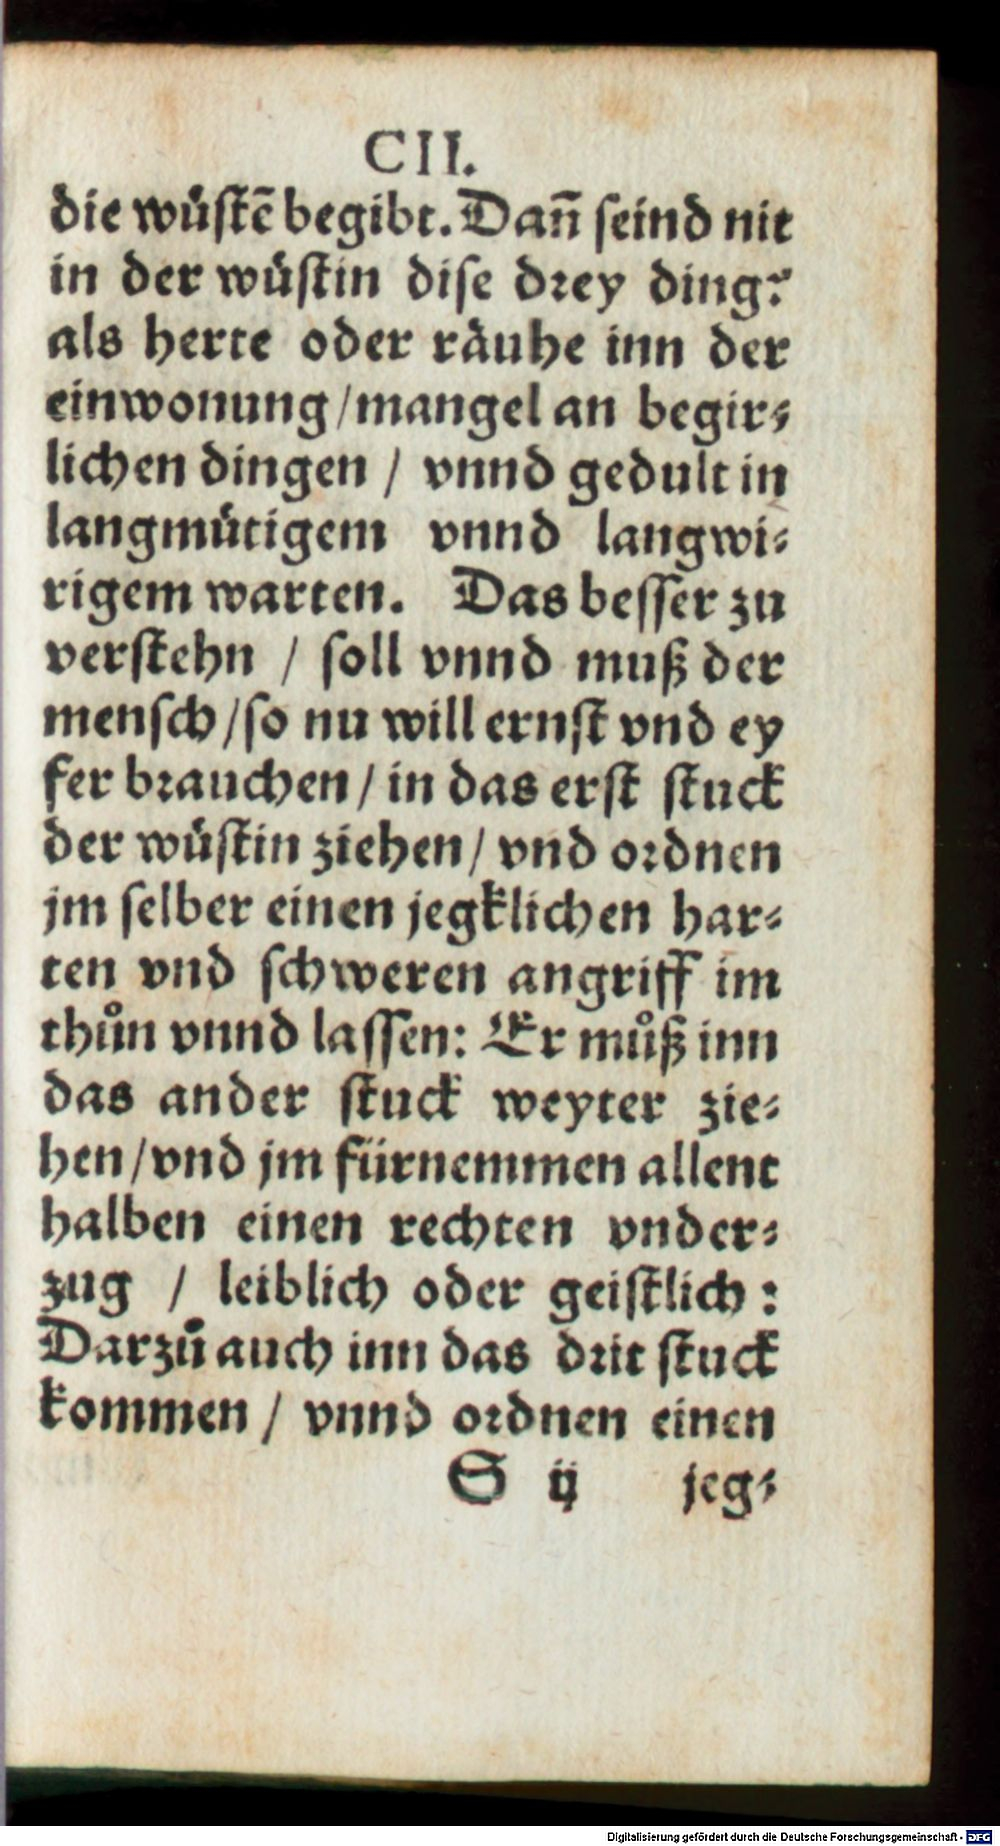 CII.
die wuͤſtē begibt. Dañ ſeind nit
in der wuͤſtin diſe drey ding?
als herte oder raͤuhe inn der
einwonung / mangel an begir⸗
lichen dingen / vnnd gedult in
langmuͤtigem vnnd langwi⸗
rigem warten. Das beſſer zu
verſtehn / ſoll vnnd muß der
menſch / ſo nu will ernſt vnd ey
fer brauchen / in das erſt ſtuck
der wuͤſtin ziehen / vnd ordnen
jm ſelber einen jegklichen har⸗
ten vnd ſchweren angriff im
thuͦn vnnd laſſen: Er muͦß inn
das ander ſtuck weyter zie⸗
hen / vnd jm fürnemmen allent
halben einen rechten vnder⸗
zug / leiblich oder geiſtlich:
Darzuͦ auch inn das drit ſtuck
kommen / vnnd ordnen einen
S ij jeg⸗
Digitalisierung gefördert durch die Deutsche Forschungsgemeinschaft - DFG